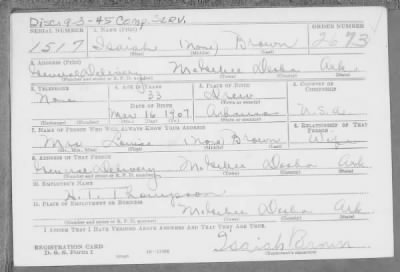 Disc. 9-3-45 Comp. Serv.
SERIAL NUMBER 1. NAME (Print) ORDER NUMBER
1517 Isaiah (None) Brown 2673
(First) (Middle) (Last)
2. ADDRESS (Print)
General Delivery McGehee Desha Ark
(Number and street or R. F. D. number) (Town) (County) (State)
3. TELEPHONE 4. AGE IN YEARS 5. PLACE OF BIRTH 6. COUNTRY OF CITIZENSHIP
None 33 Drew
DATE OF BIRTH (Town or county)
Mar 16 1907 Arkansas U.S.A.
(Exchange) (Number) (Mo.) (Day) (Yr.) (State or country)
7. NAME OF PERSON WHO WILL ALWAYS KNOW YOUR ADDRESS 8. RELATIONSHIP OF THAT PERSON
Mrs Louise (None) Brown Wife
(Mr., Mrs., Miss) (First) (Middle) (Last)
9. ADDRESS OF THAT PERSON
General Delivery McGehee Desha Ark
(Number and street or R. F. D. number) (Town) (County) (State)
10. EMPLOYER'S NAME
Thompson
11. PLACE OF EMPLOYMENT OR BUSINESS
McGehee Desha Ark
(Number and street or R. F. D. number) (Town) (County) (State)
I AFFIRM THAT I HAVE VERIFIED ABOVE ANSWERS AND THAT THEY ARE TRUE.
REGISTRATION CARD
D. S. S. Form 1
Isaiah Brown
(Registrant's signature)